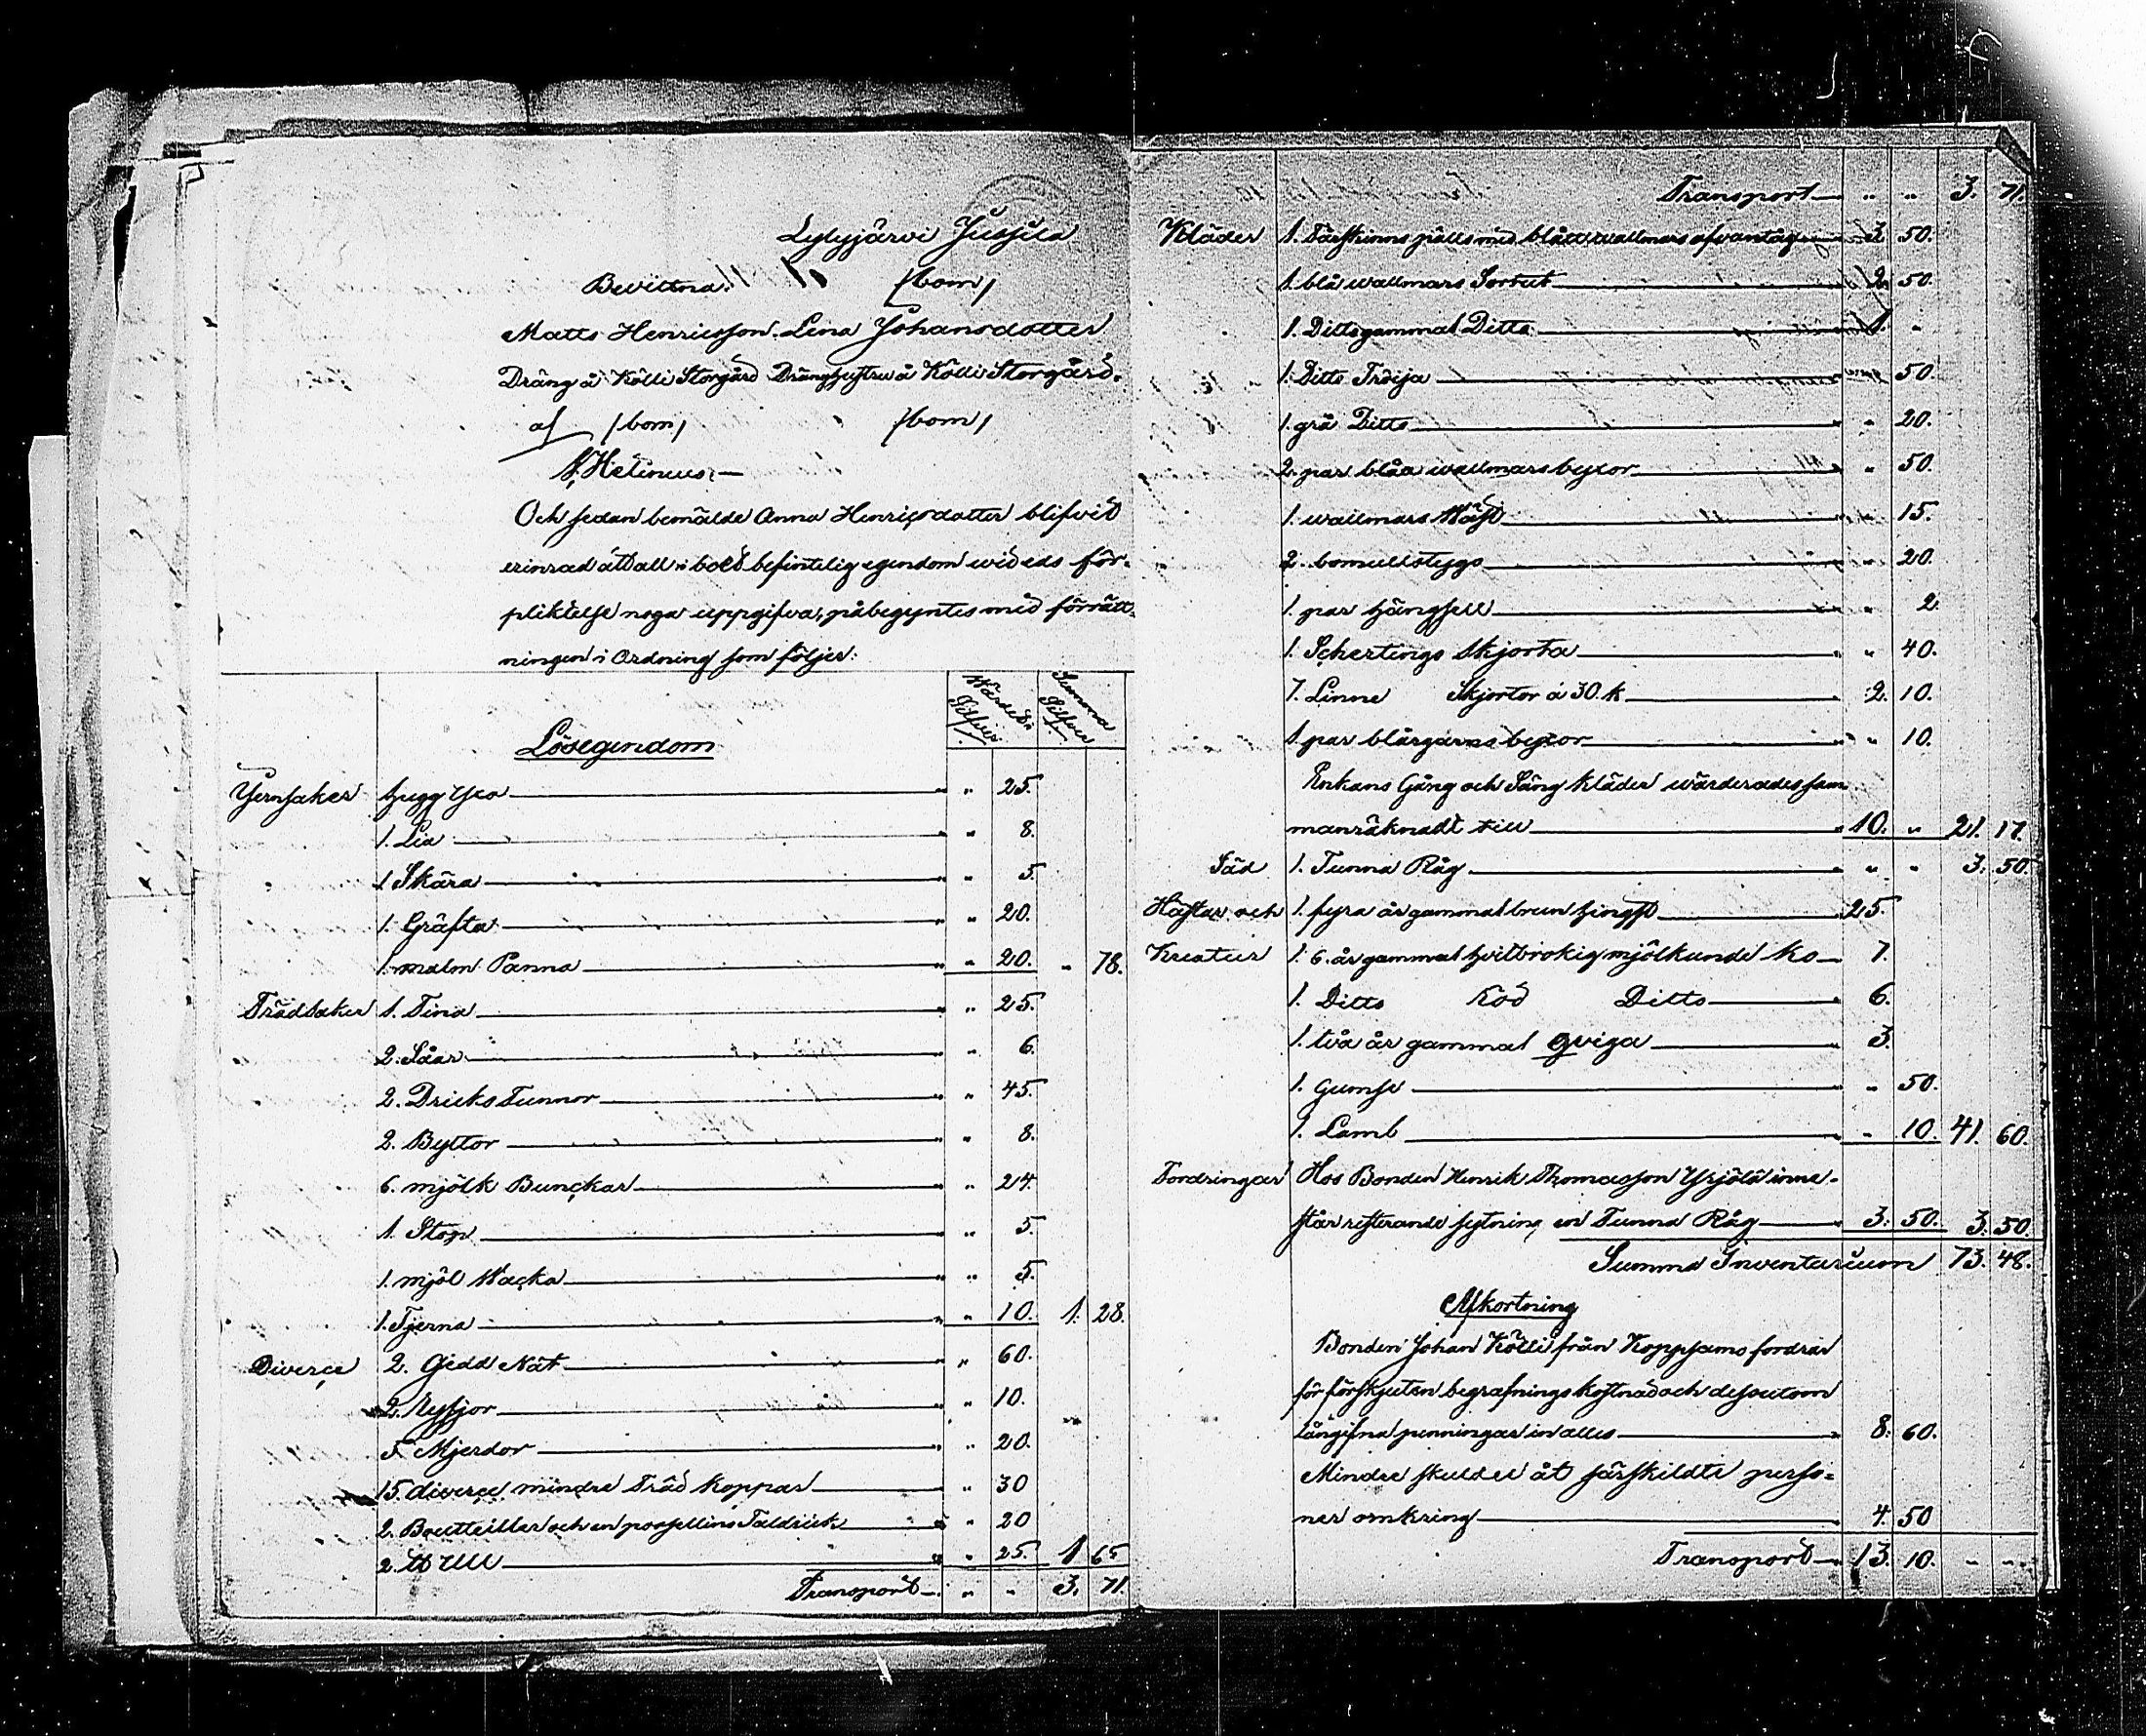 Lylyjärvi Jussila
Bevittna: /bom/
Matts Henricsson. Lena Johansdotter
Dräng å Kölli Storgård Dränghustru å Kölli Storgård.
af /bom/ /bom/
Helinus.—
Och sedan bemälde Anna Henricsdotter blifvit
erinrad att all i boet befintelig egendom wid eds för-
pliktelse noga uppgifva, påbegyntes med förrätt-
ningen i Ordning som följer:
Wärde Silfver Summa Silfver
Lösegendom
Jernsaker hugg Yxa — " 25.
1. Lia — " 8.
1 Skära — " 5.
1. Gräfta — " 20.
1. malm Panna — " 20. " 78.
Trädsaker 1. Tina — " 25.
2. Såar — " 6.
2. Dricks Tunnor — " 45.
2. Byttor — " 8.
6. mjölk Bunckar — " 24.
1. Stop — " 5.
1. mjöl Wacka — " 5.
1. Tjerna — " 10. 1. 28.
Diverce 2. Gjedd Nät — " 60.
2. Ryssjor — " 10.
5. Mjerdor — " 20.
15. diverce mindre Träd koppar — " 30
2. Boutteiller och en porsellins Taldrick — " 20
2. ℔ Ull — " 25. 1 65
Transport — " " 3. 71.
Transport — " " 3. 71.
Kläder 1. Fårskinns päls med blått wallmars — 3 50.
1. blå wallmars Sortut — 2. 50.
1. Ditto gammal Ditto — 1. "
1. Ditto Tröija — 50.
1. grå Ditto — " 20.
2. par blåa wallmars byxor — " 50.
1. wallmars Wäst — " 15.
2. bomullstygs — " 20.
1. par hängsell — " 2.
1. Schertings Skjorta — " 40.
7. Linne Skjortor á 30. k — 2. 10.
1. par blårgarns byxor — " 10.
Enkans Gång och Säng kläder wärderades sam-
manräknadt till — 10. " 21. 17.
Säd 1. Tunna Råg — " " 3. 50.
Hästar och 1. fyra år gammal brun hingst — 25.
Kreatur 1. 6. år gammal hvitbrokig mjölkande ko — 7.
1. Ditto röd Ditto — 6.
1. två år gammal qviga — 3.
1. Gumse — " 50.
1. Lamb — " 10. 41. 60.
Fordringar Hos Bonden Henrik Thomasson Yrjölä inne-
står resterande sytning en Tunna Råg — 3. 50. 3. 50.
Summa Inventarium 73. 48.
Afkortning
Bonden Johan Kölli från Koppsamo fordrar
för förskjuten begrafnings kostnad och dessutom
långifna penningar in alles — 8. 60.
Mindre skulder åt särskildte perso-
ner omkring — 4. 50
Transport — 13. 10. - -